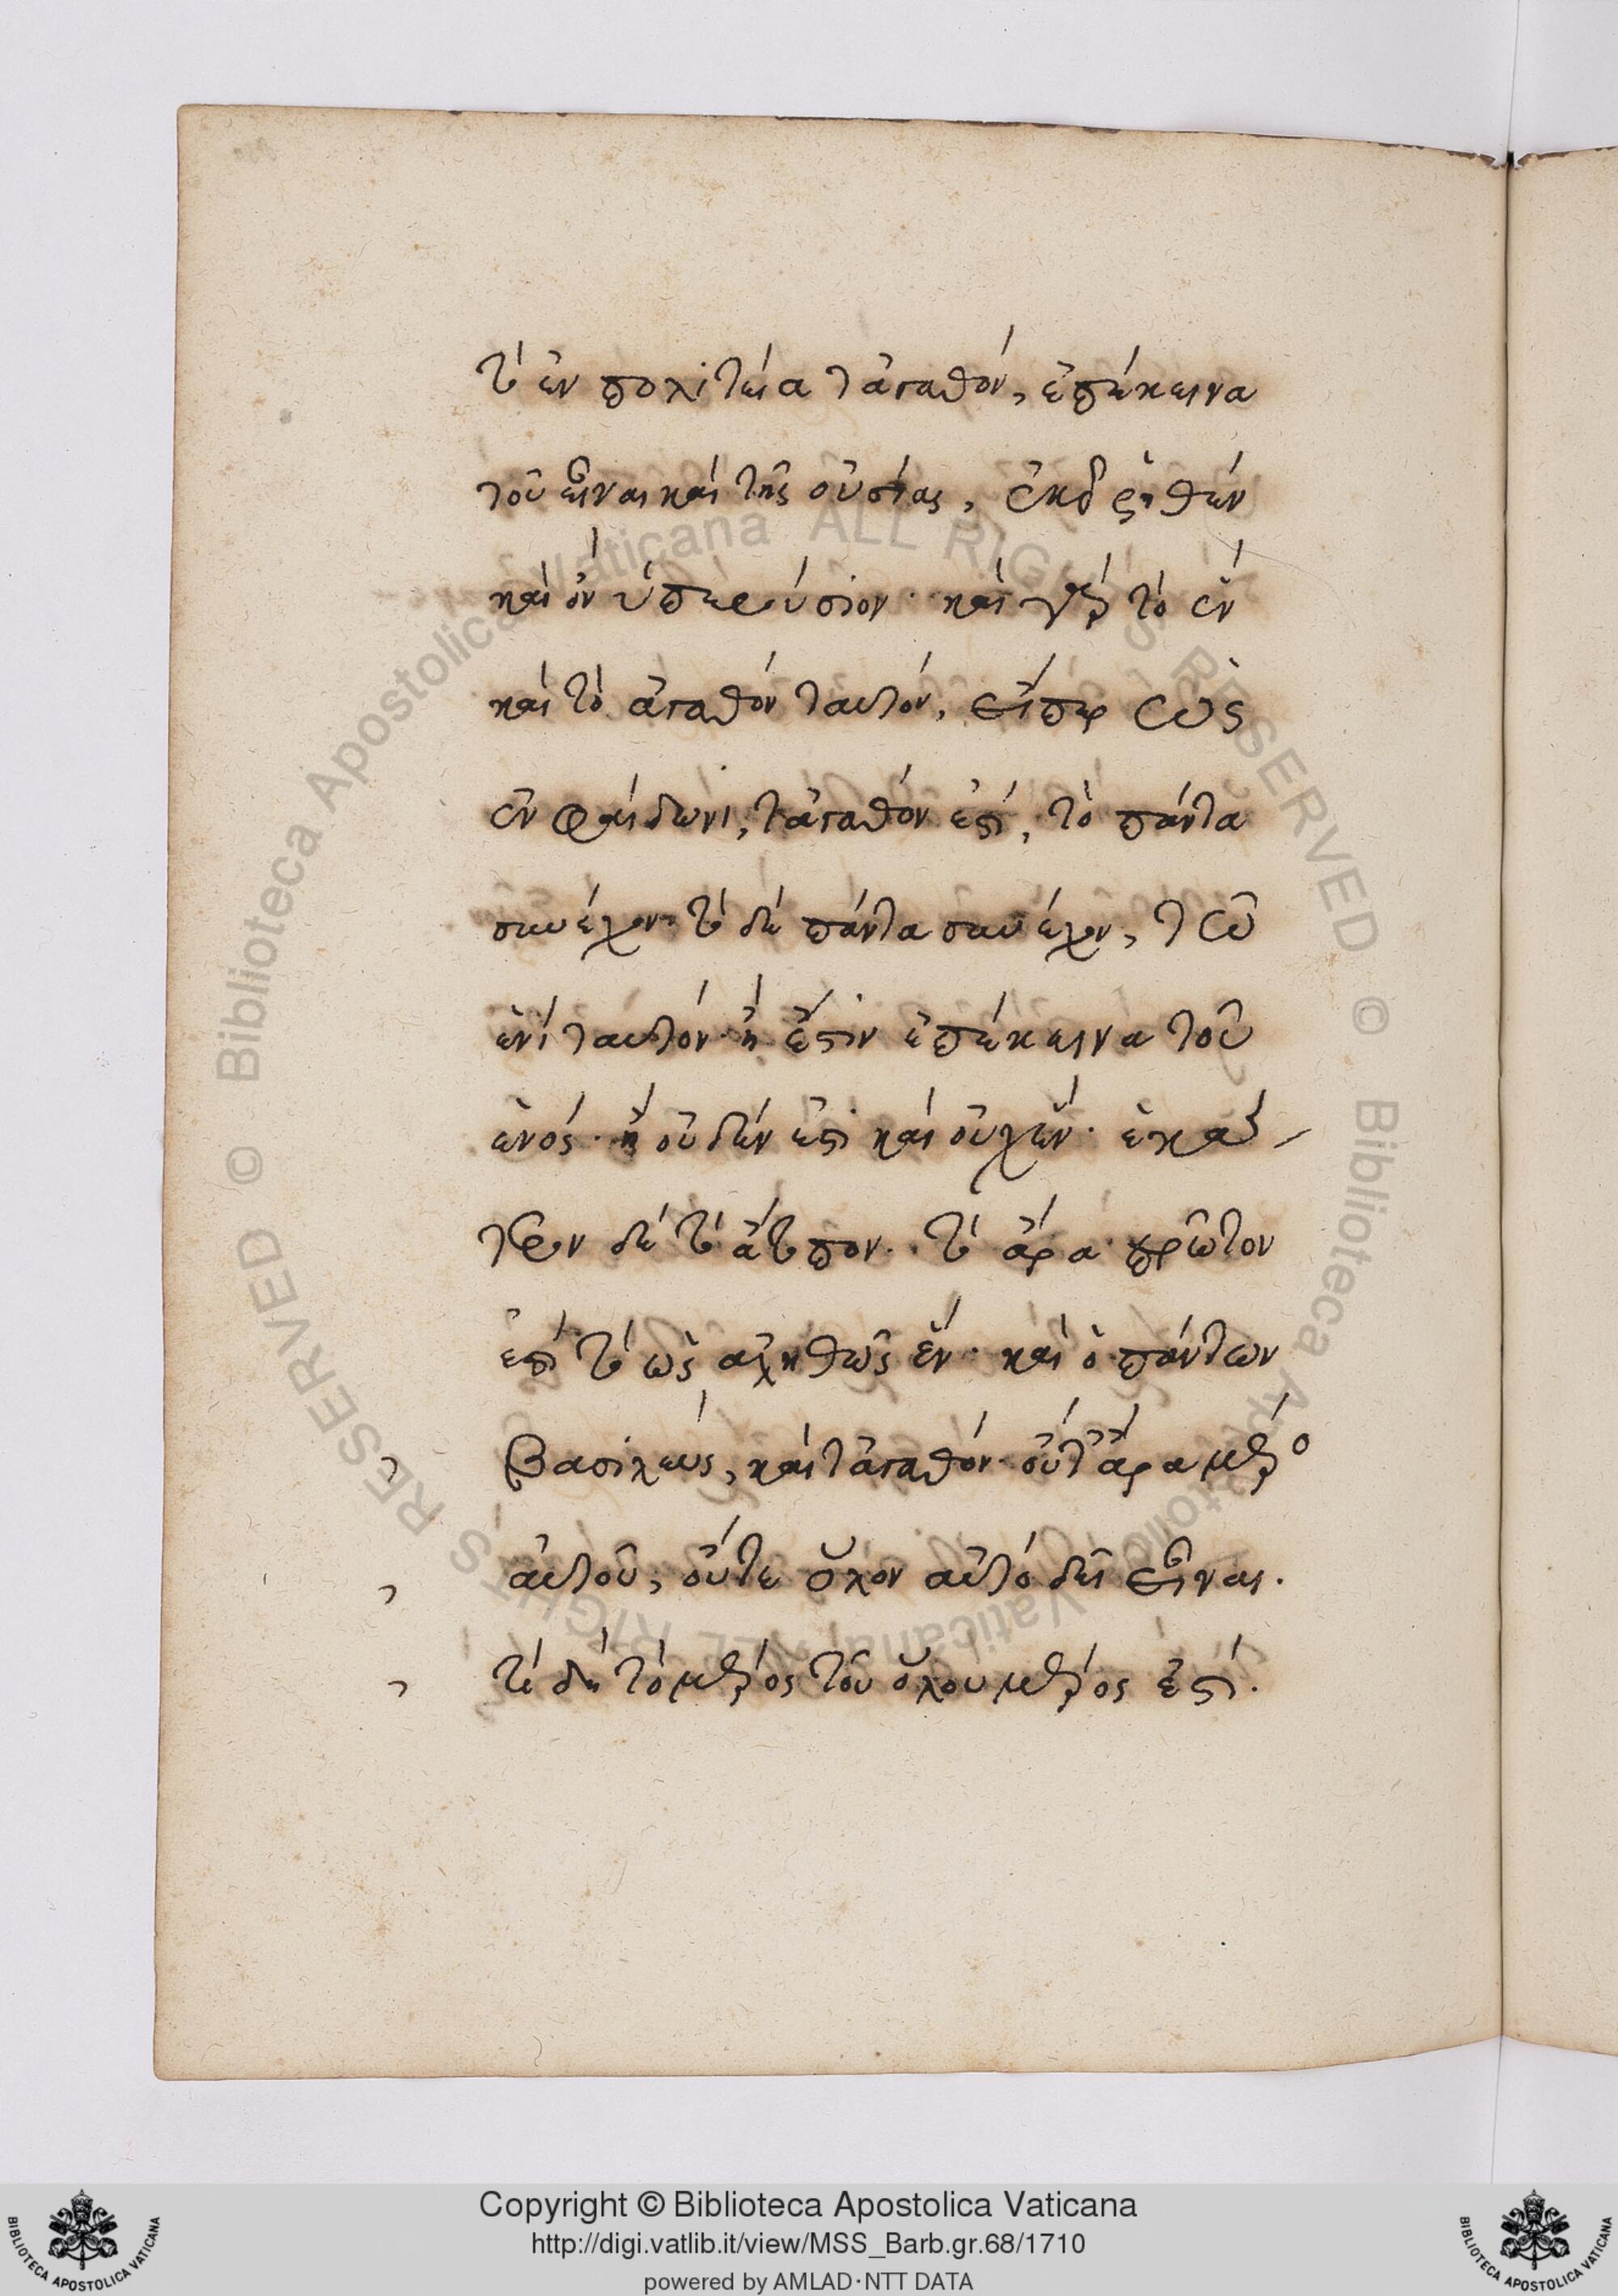 τὸ ἐν πολιτεία τἀγαθόν, ἐπέκεινα
τοῦ εἶναι καὶ τῆς οὐσίας, ἐκεῖ ῥηθὲν
καὶ ὂν ὑπερούσιον· καὶ γὰρ τὸ ἓν
καὶ τὸ ἀγαθὸν ταυτόν, εἴπερ ὡς
ἐν φαίδωνι, τἀγαθόν ἐστι, τὸ πάντα
συνέχον· τὸ δὲ πάντα συνέχον, τῶ
ἑνὶ ταυτόν· ἢ ἔστιν ἐπέκεινα τοῦ
ἑνός· ἢ οὐδέν ἐστι καὶ οὐχ ἕν· ἑκά-
τερον δὲ τὸ ἄτοπον· τὸ ἄρα πρῶτον
ἐστὶ τὸ ὡς ἀληθῶς ἕν· καὶ ὁ πάντων
βασιλεὺς, καὶ τἀγαθόν· οὔτ' ἄρα μέρος
αὐτοῦ, οὔτε ὅλον αὐτὸ δεῖ εἶναι.
τί δή; τὸ μέρος τοῦ ὅλου μέρος ἐστί.
Copyright © Biblioteca Apostolica Vaticana
http://digi.vatlib.it/view/MSS_Barb.gr.68/1710
powered by AMLAD·NTT DATA